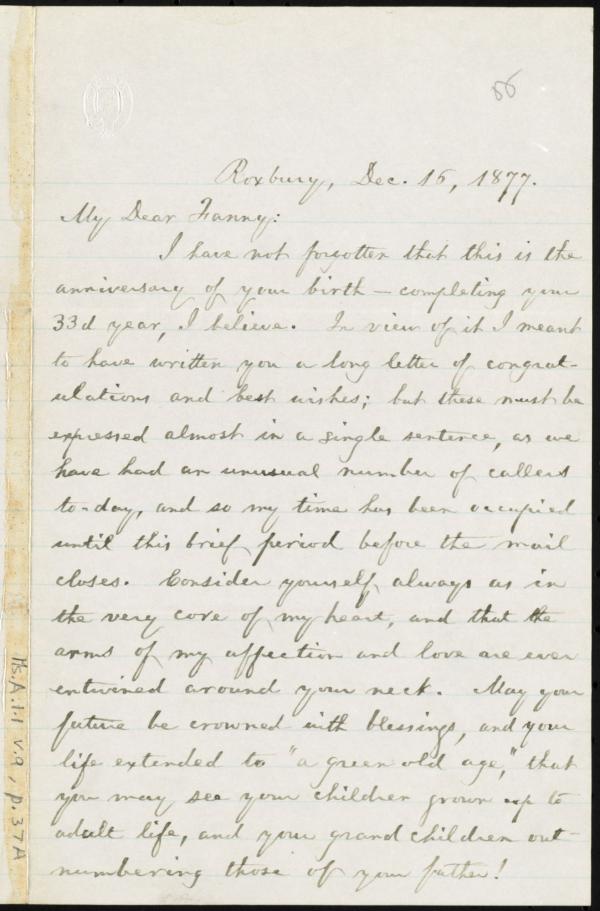 56
Roxbury, Dec. 16, 1877.
My Dear Fanny:
I have not forgotten that this is the
anniversary of your birth — completing your
33d year, I believe. In view of it I meant
to have written you a long letter of congrat-
ulations and best wishes; but these must be
expressed almost in a single sentence, as we
have had an unusual number of callers
to-day, and so my time has been occupied
until this brief period before the mail
closes. Consider yourself always as in
the very core of my heart, and that the
arms of my affection and love are ever
entwined around your neck. May your
future be crowned with blessings, and your
life extended to "a green old age," that
you may see your children grown up to
adult life, and your grandchildren out-
numbering those of your father!
Ms.A.1.1 v.9, p.37A